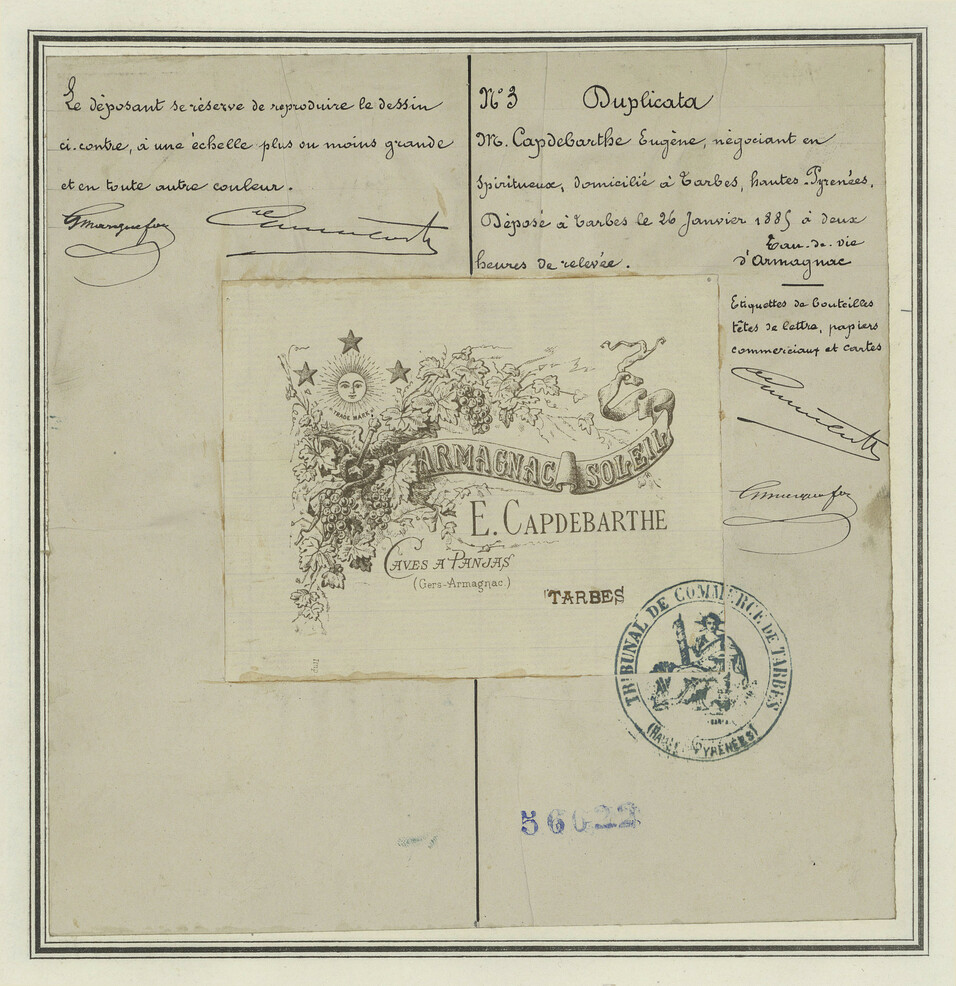 Le déposant se réserve de reproduire le dessin
ci-contre, à une échelle plus ou moins grande
et en toute autre couleur.
N° 3 Duplicata
M. Capdebarthe Eugène, négociant en
Spiritueux, domicilié à Tarbes, hautes-Pyrenées,
Déposé à Tarbes le 26 Janvier 1885 à deux
heures de relevée.
Eau-de-vie
d'Armagnac
Etiquettes de bouteilles
têtes de lettre, papiers
commerciaux et cartes
TRADE MARK
ARMAGNAC SOLEIL
E. CAPDEBARTHE
CAVES A PANJAS
(Gers-Armagnac)
TARBES
TRIBUNAL DE COMMERCE DE TARBES
PYRÉNÉES)
56022